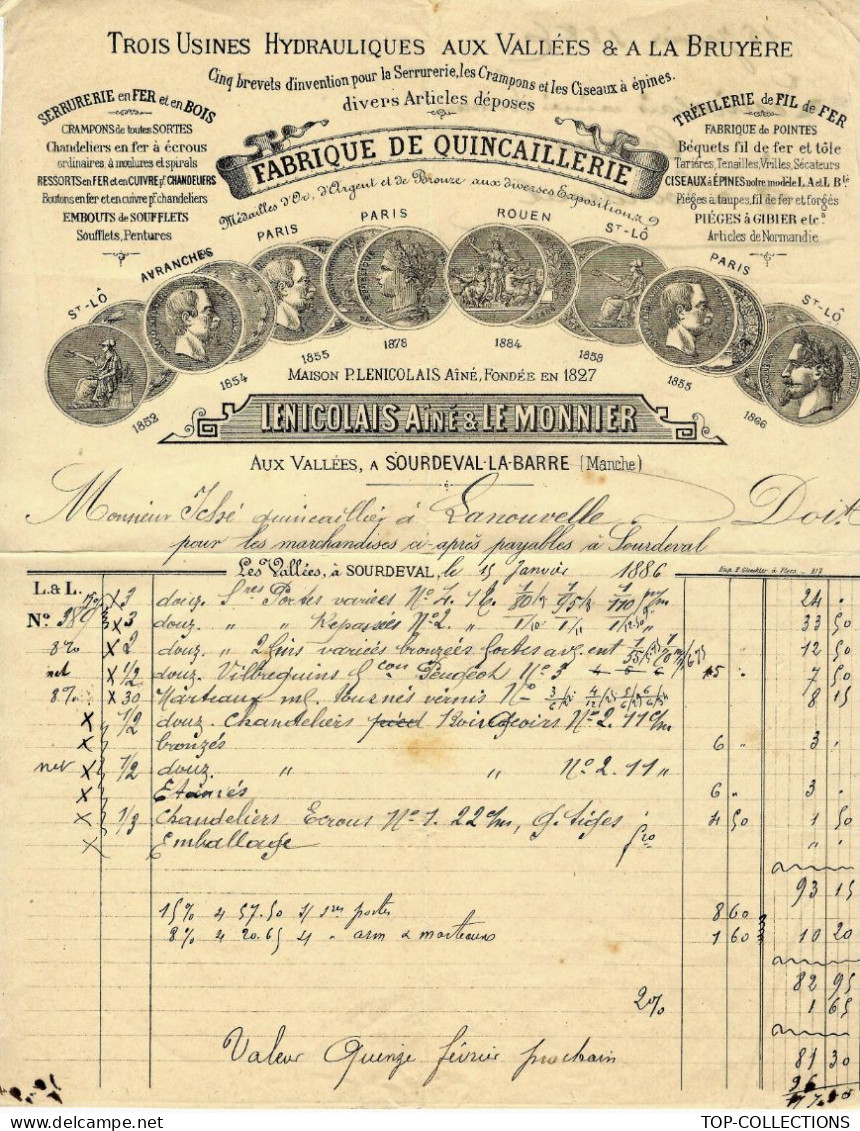 TROIS USINES HYDRAULIQUES AUX VALLÉES & A LA BRUYÈRE
Cinq brevets d'invention pour la Serrurerie, les Crampons et les Ciseaux à épines.
divers Articles déposés
SERRURERIE en FER et en BOIS
CRAMPONS de toutes SORTES
Chandeliers en fer à écrous
ordinaires, à moulures et spirals
RESSORTS en FER et en CUIVRE pr. CHANDELIERS
Boutons en fer et en cuivre pr. chandeliers
EMBOUTS de SOUFFLETS
Soufflets, Pentures
TRÉFILERIE de FIL de FER
FABRIQUE DE POINTES
Béquets fil de fer et tôle
Tarières, Tenailles, Vrilles, Sécateurs
CISEAUX à ÉPINES notre modèle L A et L Bté
Pièges à taupes, fil de fer et forgés
PIÉGES À GIBIER etc.
Articles de Normandie
FABRIQUE DE QUINCAILLERIE
Médailles d'Or, d'Argent et de Bronze aux diverses Expositions
ST-LÔ
AVRANCHES
PARIS
PARIS
ROUEN
ST-LÔ
PARIS
ST-LÔ
1852
1854
1855
1878
1884
1859
1855
1866
MAISON P. LENICOLAIS AÎNÉ, FONDÉE EN 1827
LENICOLAIS AÎNÉ & LE MONNIER
AUX VALLÉES, A SOURDEVAL-LA-BARRE (Manche)
Monsieur quincaillier à Lanouvelle Doit
pour les marchandises ci-après payables à Sourdeval
Les Vallées, à SOURDEVAL, le 15 Janvier 1886
L. & L.
No. 389
X 3 douz. Sres Portes variées No 4. 24 "
X 3 douz. " " Repassées No 2. " 33 50
8% X 2 douz. " 2 fins variées bronzées fortes av. ent 12 50
net X 1/2 douz. Vilbrequins fcon Peugeot No 3 4 5 6 15 " 7 50
8% X 30 Marteaux ml. tournés vernis No 8 15
X 1/2 douz. Chandeliers No 2. 11 c/m
X bronzés 6 " 3 "
net X 1/2 douz. " " No 2. 11 "
X Etamés 6 " 3 "
X 1/3 Chandeliers Ecrous No 1. 22 c/m, g. tiges 4 50 1 50
X Emballage fco " "
93 15
15% s 57.50 s/ sres portes 8 60
8% s 20.65 s " arm & marteaux 1 60 10 20
82 95
2% 1 65
Valeur Quinze février prochain 81 30
TOP-COLLECTIONS